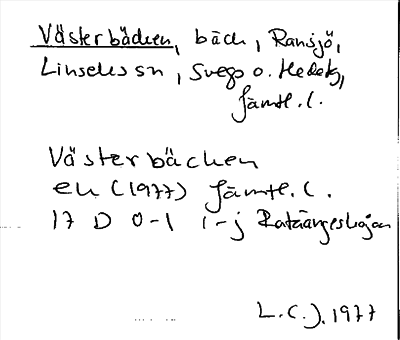 Västerbäcken, bäck, Ransjö,
Linsells sn, Svegs o. Hede tg,
Jämtl. l.
Västerbäcken
ek (1977) Jämtl. l.
17 D 0-1 i-j
L.C.J. 1977